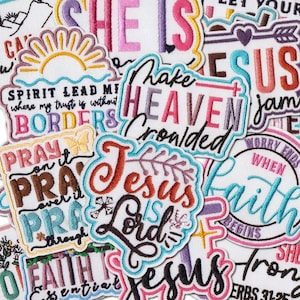 SHE IS
LET YOUR
CA
SPIRIT LEAD ME
where my trust is without
BORDERS
Make
HEAVEN
Crowded
JESUS
jam
PRAY
on it
PRAY
over it
PRAY
through
Jesus
IS
Lord
WORRY ENDS
WHEN
faith
BEGINS
O FAITH I
sential
Jesus
SHE
Iron
ERBS 31:25